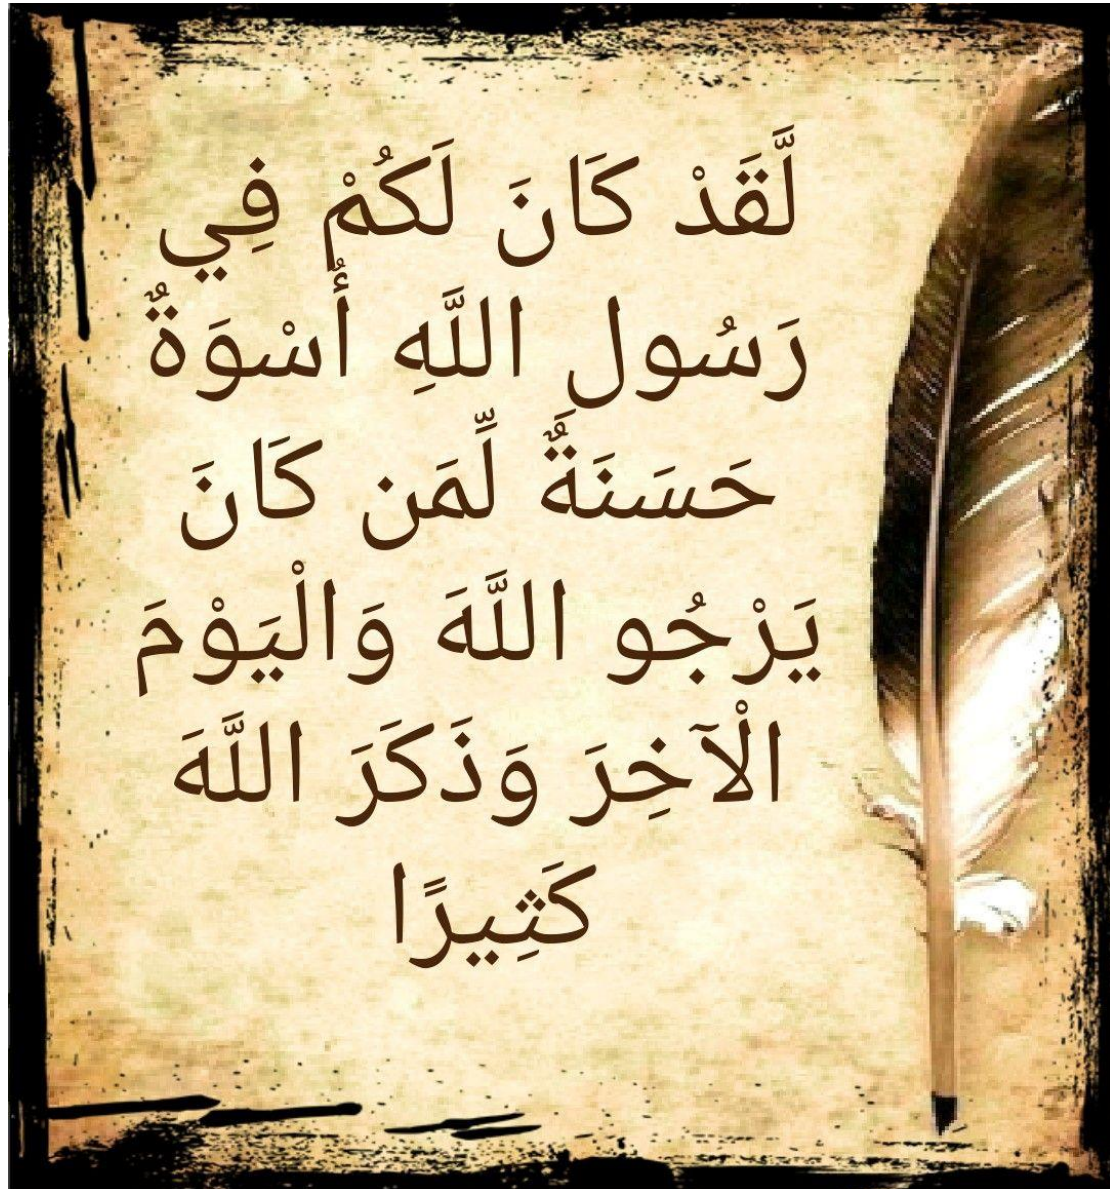 لَّقَدْ كَانَ لَكُمْ فِي
رَسُولِ اللَّهِ أُسْوَةٌ
حَسَنَةٌ لِّمَن كَانَ
يَرْجُو اللَّهَ وَالْيَوْمَ
الْآخِرَ وَذَكَرَ اللَّهَ
كَثِيرًا